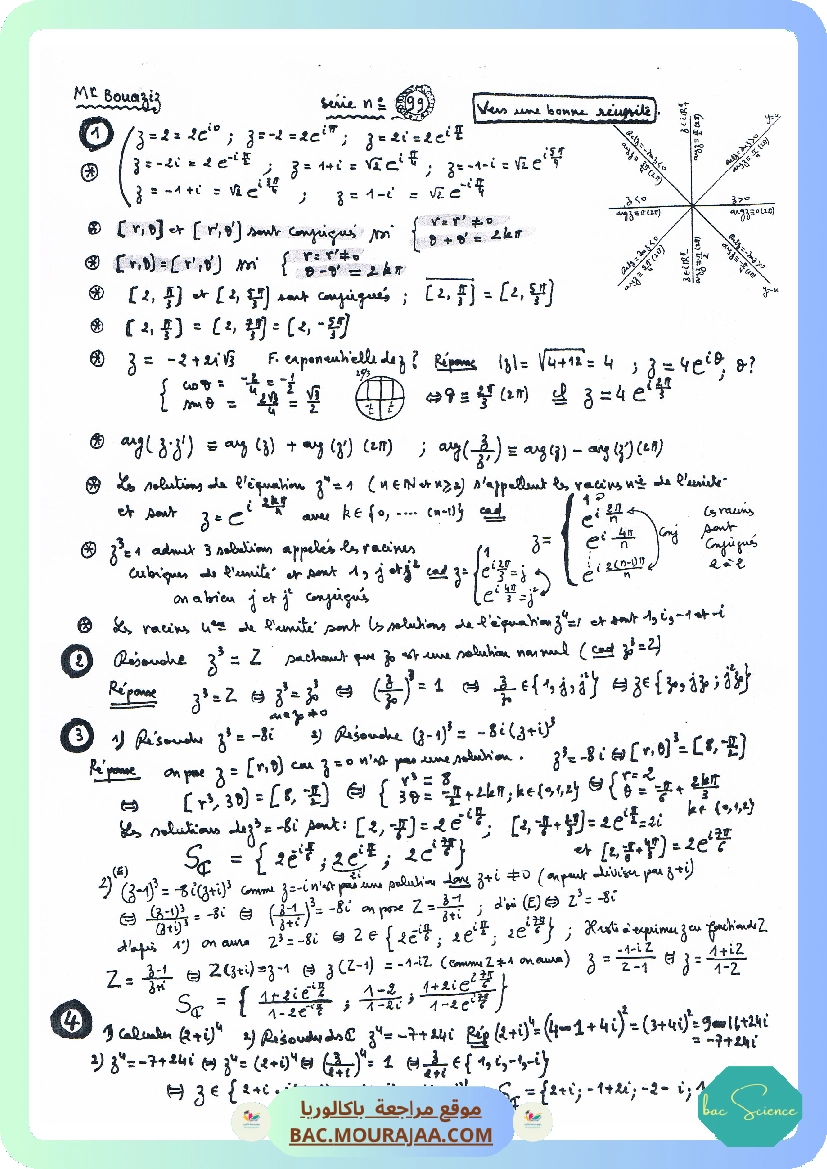 Mr Bouaziz
Série n° 99
Vers une bonne réussite.
1
z = 2 = 2e^{i0} ; z = -2 = 2e^{iπ} ; z = 2i = 2e^{iπ/2}
z = -2i = 2e^{-iπ/2} ; z = 1+i = √2 e^{iπ/4} ; z = -1-i = √2 e^{i5π/4}
z = -1+i = √2 e^{i3π/4} ; z = 1-i = √2 e^{-iπ/4}
z<0
arg z ≡ π (2π)
z>0
arg z ≡ 0 (2π)
[r,θ] et [r',θ'] sont conjugués ssi { r = r' ≠ 0
θ + θ' = 2kπ
[r,θ] = [r',θ'] ssi { r = r' ≠ 0
θ - θ' = 2kπ
[2, π/3] et [2, 5π/3] sont conjugués ; \overline{[2, π/3]} = [2, 5π/3]
[2, π/3] = [2, 7π/3] = [2, -5π/3]
z = -2 + 2i√3 F. exponentielle de z ? Réponse |z| = √(4+12) = 4 ; z = 4e^{iθ}, θ ?
{ cos θ = -2/4 = -1/2
sin θ = 2√3/4 = √3/2
⇔ θ ≡ 2π/3 (2π) cl z = 4 e^{i2π/3}
arg(z·z') ≡ arg(z) + arg(z') (2π) ; arg(z/z') ≡ arg(z) - arg(z') (2π)
Les solutions de l'équation zⁿ = 1 (n ∈ ℕ et n ≥ 2) s'appellent les racines nième de l'unité
et sont z = e^{i2kπ/n} avec k ∈ {0, .... (n-1)} cad
z = { 1
e^{i2π/n}
e^{i4π/n}
e^{i2(n-1)π/n}
Conj
Les racines
sont
Conjugués
2 à 2
z³ = 1 admet 3 solutions appelés les racines
cubiques de l'unité et sont 1, j et j² cad z = { 1
e^{i2π/3} = j
e^{i4π/3} = j²
on a bien j et j² conjugués
Les racines 4ème de l'unité sont les solutions de l'équation z⁴ = 1 et sont 1, i, -1 et -i
2 Résoudre z³ = Z sachant que z₀ est une solution non nul (cad z₀³ = Z)
Réponse z³ = Z ⇔ z³ = z₀³ ⇔ (z/z₀)³ = 1 ⇔ z/z₀ ∈ {1, j, j²} ⇔ z ∈ {z₀, jz₀ ; j²z₀}
z₀ ≠ 0
3 1) Résoudre z³ = -8i 2) Résoudre (z-1)³ = -8i(z+i)³
Réponse on pose z = [r,θ] car z = 0 n'est pas une solution. z³ = -8i ⇔ [r,θ]³ = [8, -π/2]
⇔ [r³, 3θ] = [8, -π/2] ⇔ { r³ = 8
3θ = -π/2 + 2kπ ; k ∈ {0,1,2} ⇔ { r = 2
θ = -π/6 + 2kπ/3
k ∈ {0,1,2}
Les solutions de z³ = -8i sont : [2, -π/6] = 2e^{-iπ/6} ; [2, -π/6 + 2π/3] = 2e^{iπ/2} = 2i
et [2, -π/6 + 4π/3] = 2e^{i7π/6}
S_ℂ = { 2e^{-iπ/6} ; 2e^{iπ/2} ; 2e^{i7π/6} }
2i
2) (E) (z-1)³ = -8i(z+i)³ comme z = -i n'est pas une solution donc z+i ≠ 0 (on peut diviser par z+i)
⇔ (z-1)³/(z+i)³ = -8i ⇔ ((z-1)/(z+i))³ = -8i on pose Z = (z-1)/(z+i) ; d'où (E) ⇔ Z³ = -8i
d'après 1°) on aura Z³ = -8i ⇔ Z ∈ {2e^{-iπ/6} ; 2e^{iπ/2} ; 2e^{i7π/6}} ; Il reste à exprimer z en fonction de Z
Z = (z-1)/(z+i) ⇔ Z(z+i) = z-1 ⇔ z(Z-1) = -1-iZ (comme Z ≠ 1 on aura) z = (-1-iZ)/(Z-1) ⇔ z = (1+iZ)/(1-Z)
S_ℂ = { (1+2ie^{-iπ/6})/(1-2e^{-iπ/6}) ; (1-2)/(1-2i) ; (1+2ie^{i7π/6})/(1-2e^{i7π/6}) }
4 1) Calculer (2+i)⁴ 2) Résoudre ds ℂ z⁴ = -7+24i Rép (2+i)⁴ = (4-1+4i)² = (3+4i)² = 9-16+24i
= -7+24i
2) z⁴ = -7+24i ⇔ z⁴ = (2+i)⁴ ⇔ (z/(2+i))⁴ = 1 ⇔ z/(2+i) ∈ {1, i, -1, -i}
⇔ z ∈ {2+i
S_ℂ = {2+i ; -1+2i ; -2-i ; 1
موقع مراجعة باكالوريا
BAC.MOURAJAA.COM
bac Science